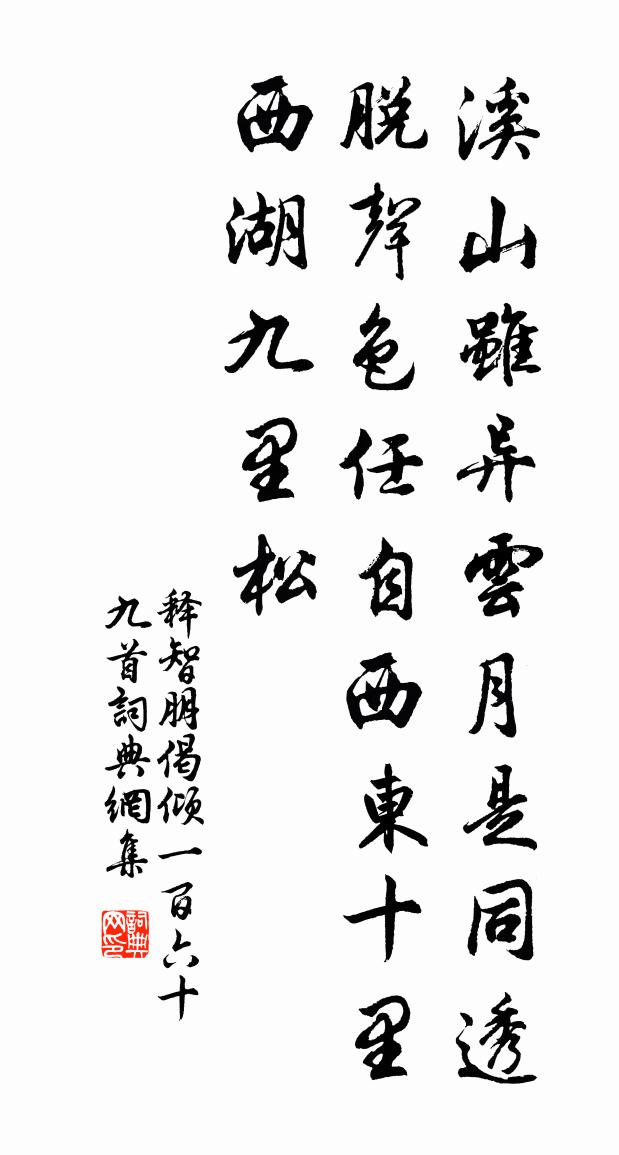 溪山雖异雲月是同透
脱聲色任自西東十里
西湖九里松
释智朋偈傾一百六十
九首詞典網集
詞典网印